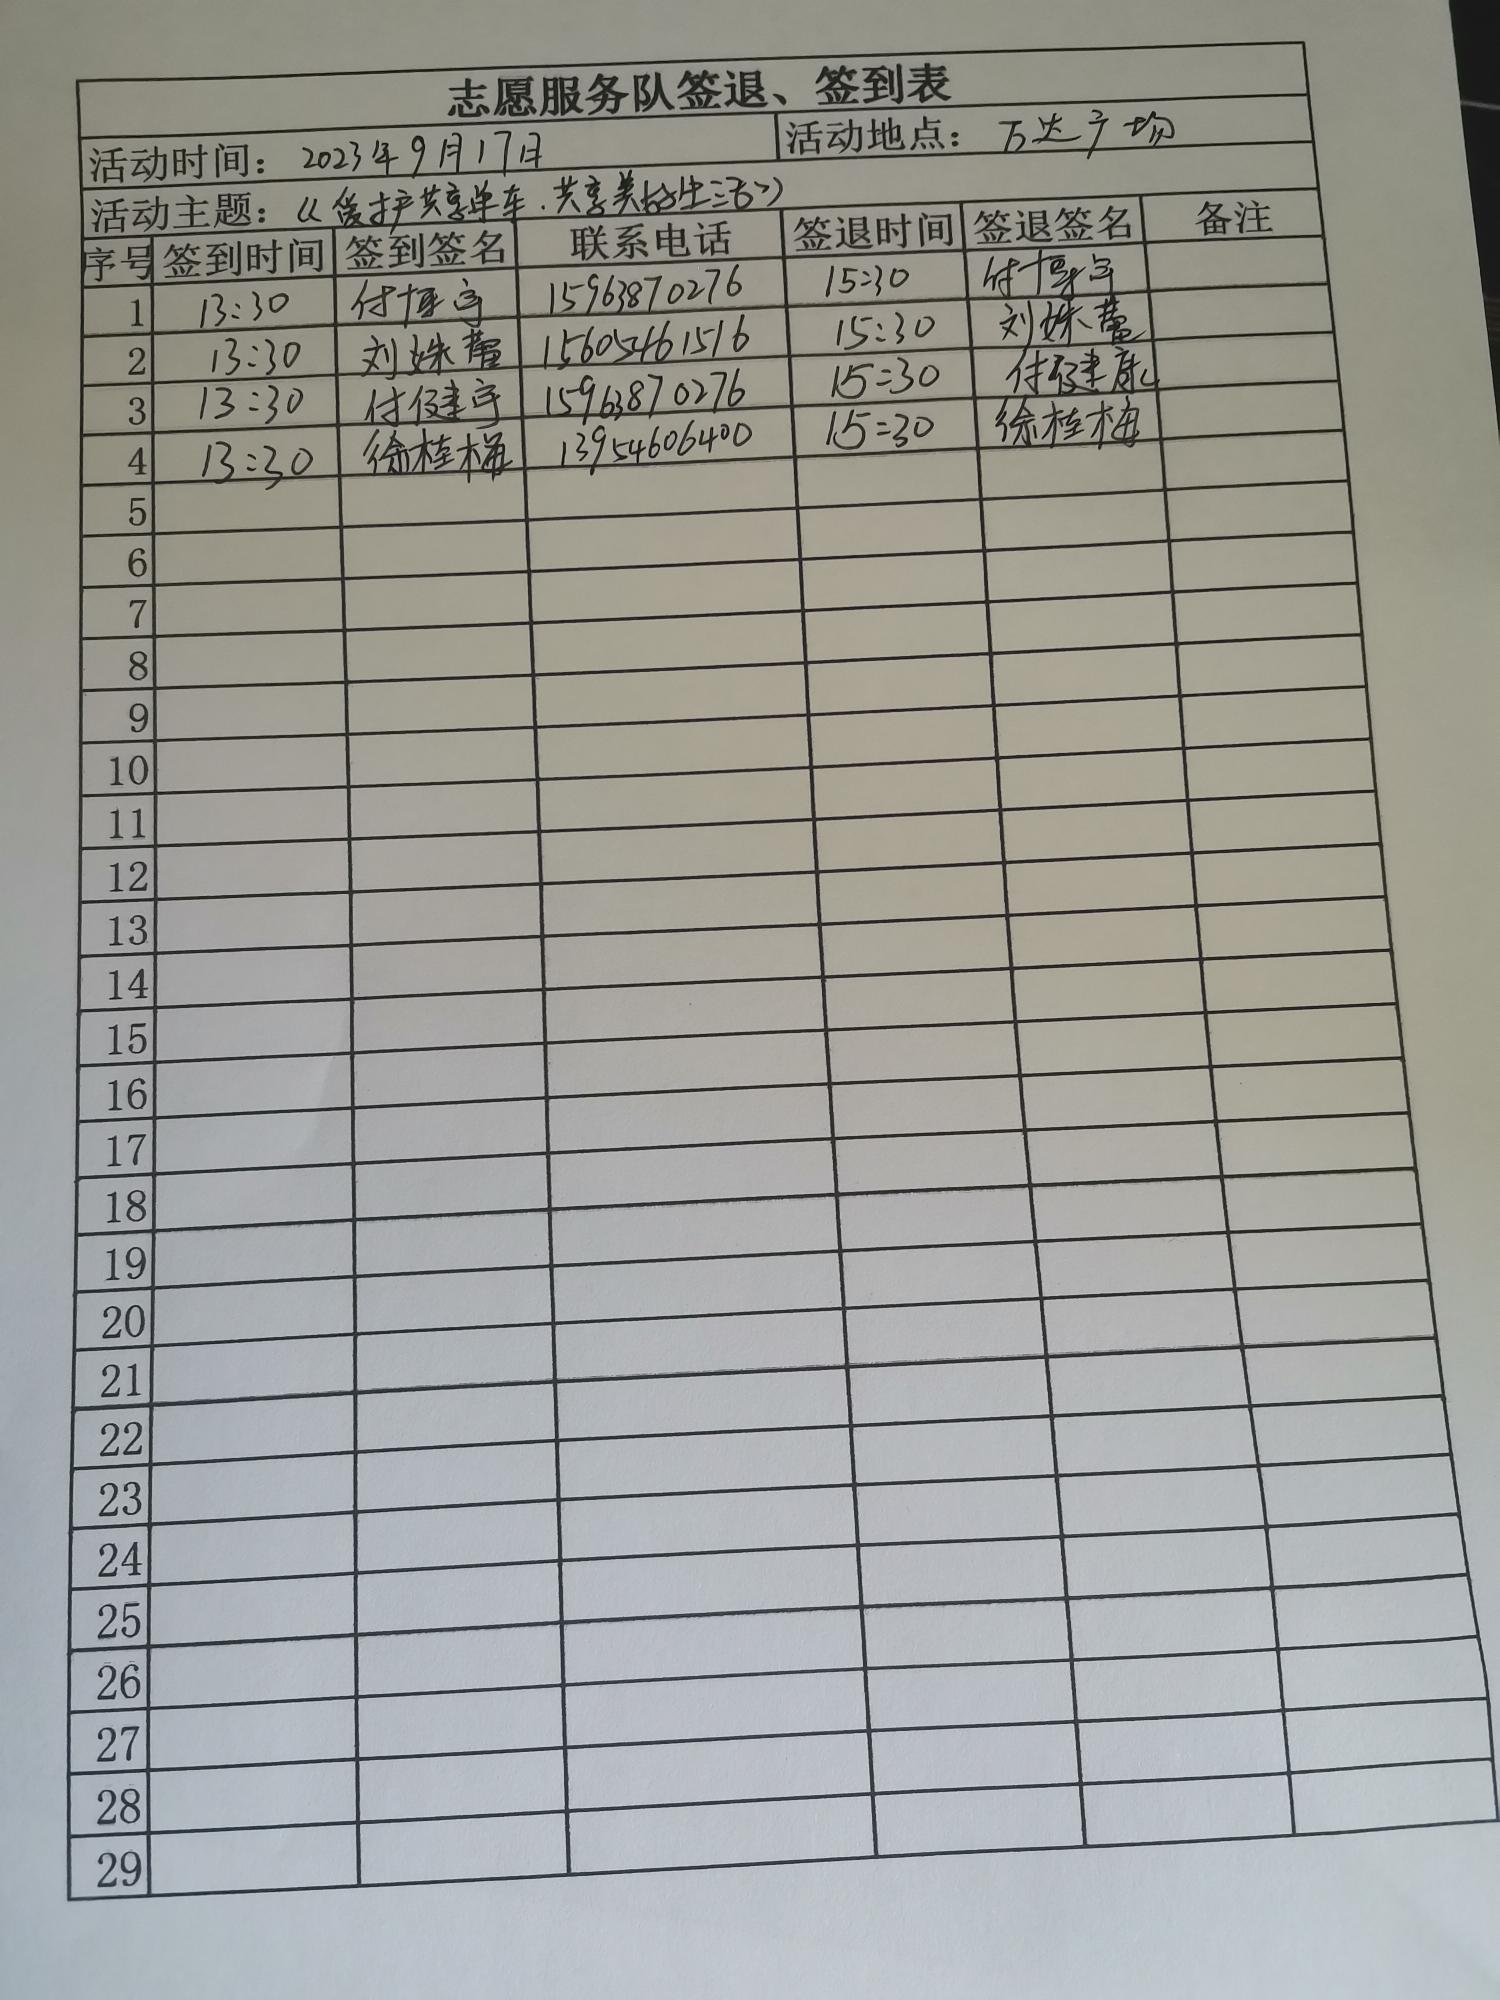 志愿服务队签退、签到表
活动时间：2023年9月17日 活动地点：万达广场
活动主题：《爱护共享单车.共享美好生活》
序号 签到时间 签到签名 联系电话 签退时间 签退签名 备注
1 13:30 付博宇 15963870276 15:30 付博宇
2 13:30 刘姝蕾 15605461516 15:30 刘姝蕾
3 13:30 付健宇 15963870276 15:30 付健康
4 13:30 徐桂梅 13954606400 15:30 徐桂梅
5
6
7
8
9
10
11
12
13
14
15
16
17
18
19
20
21
22
23
24
25
26
27
28
29